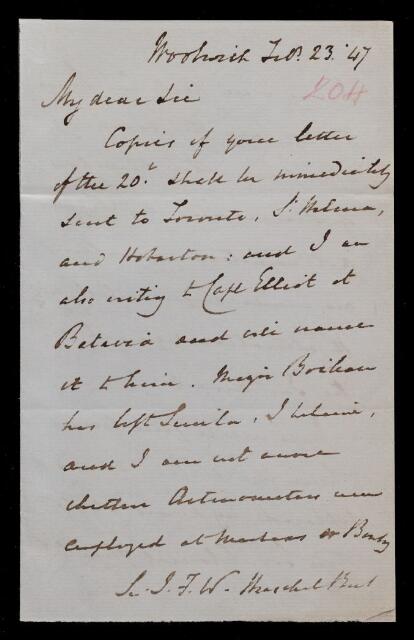 Woolwich Feb. 23. '47
204
My dear Sir
Copies of your letter
of the 20th shall be immediately
sent to Toronto, St Helena,
and Hobarton: and I am
also writing to Capt Elliot at
Batavia and will name
it to him. Major Boileau
has left Simla, I believe,
and I am not aware
whether Actinometers were
employed at Madras or Bombay
Sir J. F. W. Herschel Bart